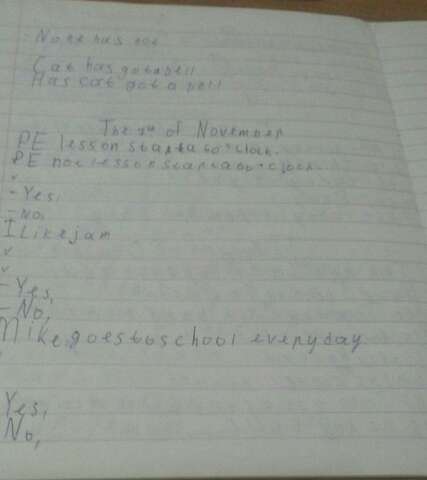 - No he has not
Cat has got a bell
Has cat got a bell
The of November
PE lesson starts o'clock.
PE not lesson starts o'clock.
- Yes,
- No,
I Like jam
- Yes,
- No,
Mike goes to school every day
Yes,
No,